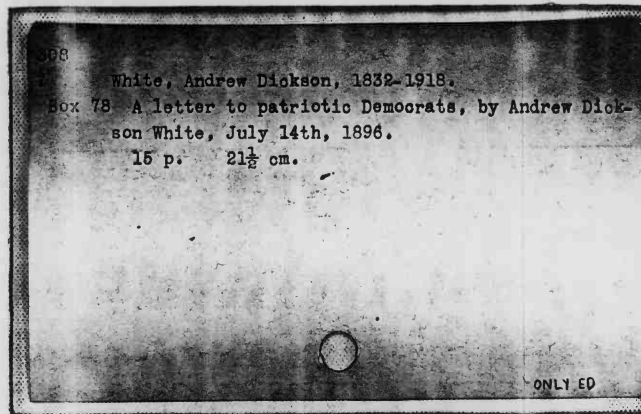 308
White, Andrew Dickson, 1832-1918.
Box 78 A letter to patriotic Democrats, by Andrew Dick-
son White, July 14th, 1896.
15 p. 21½ cm.
ONLY ED